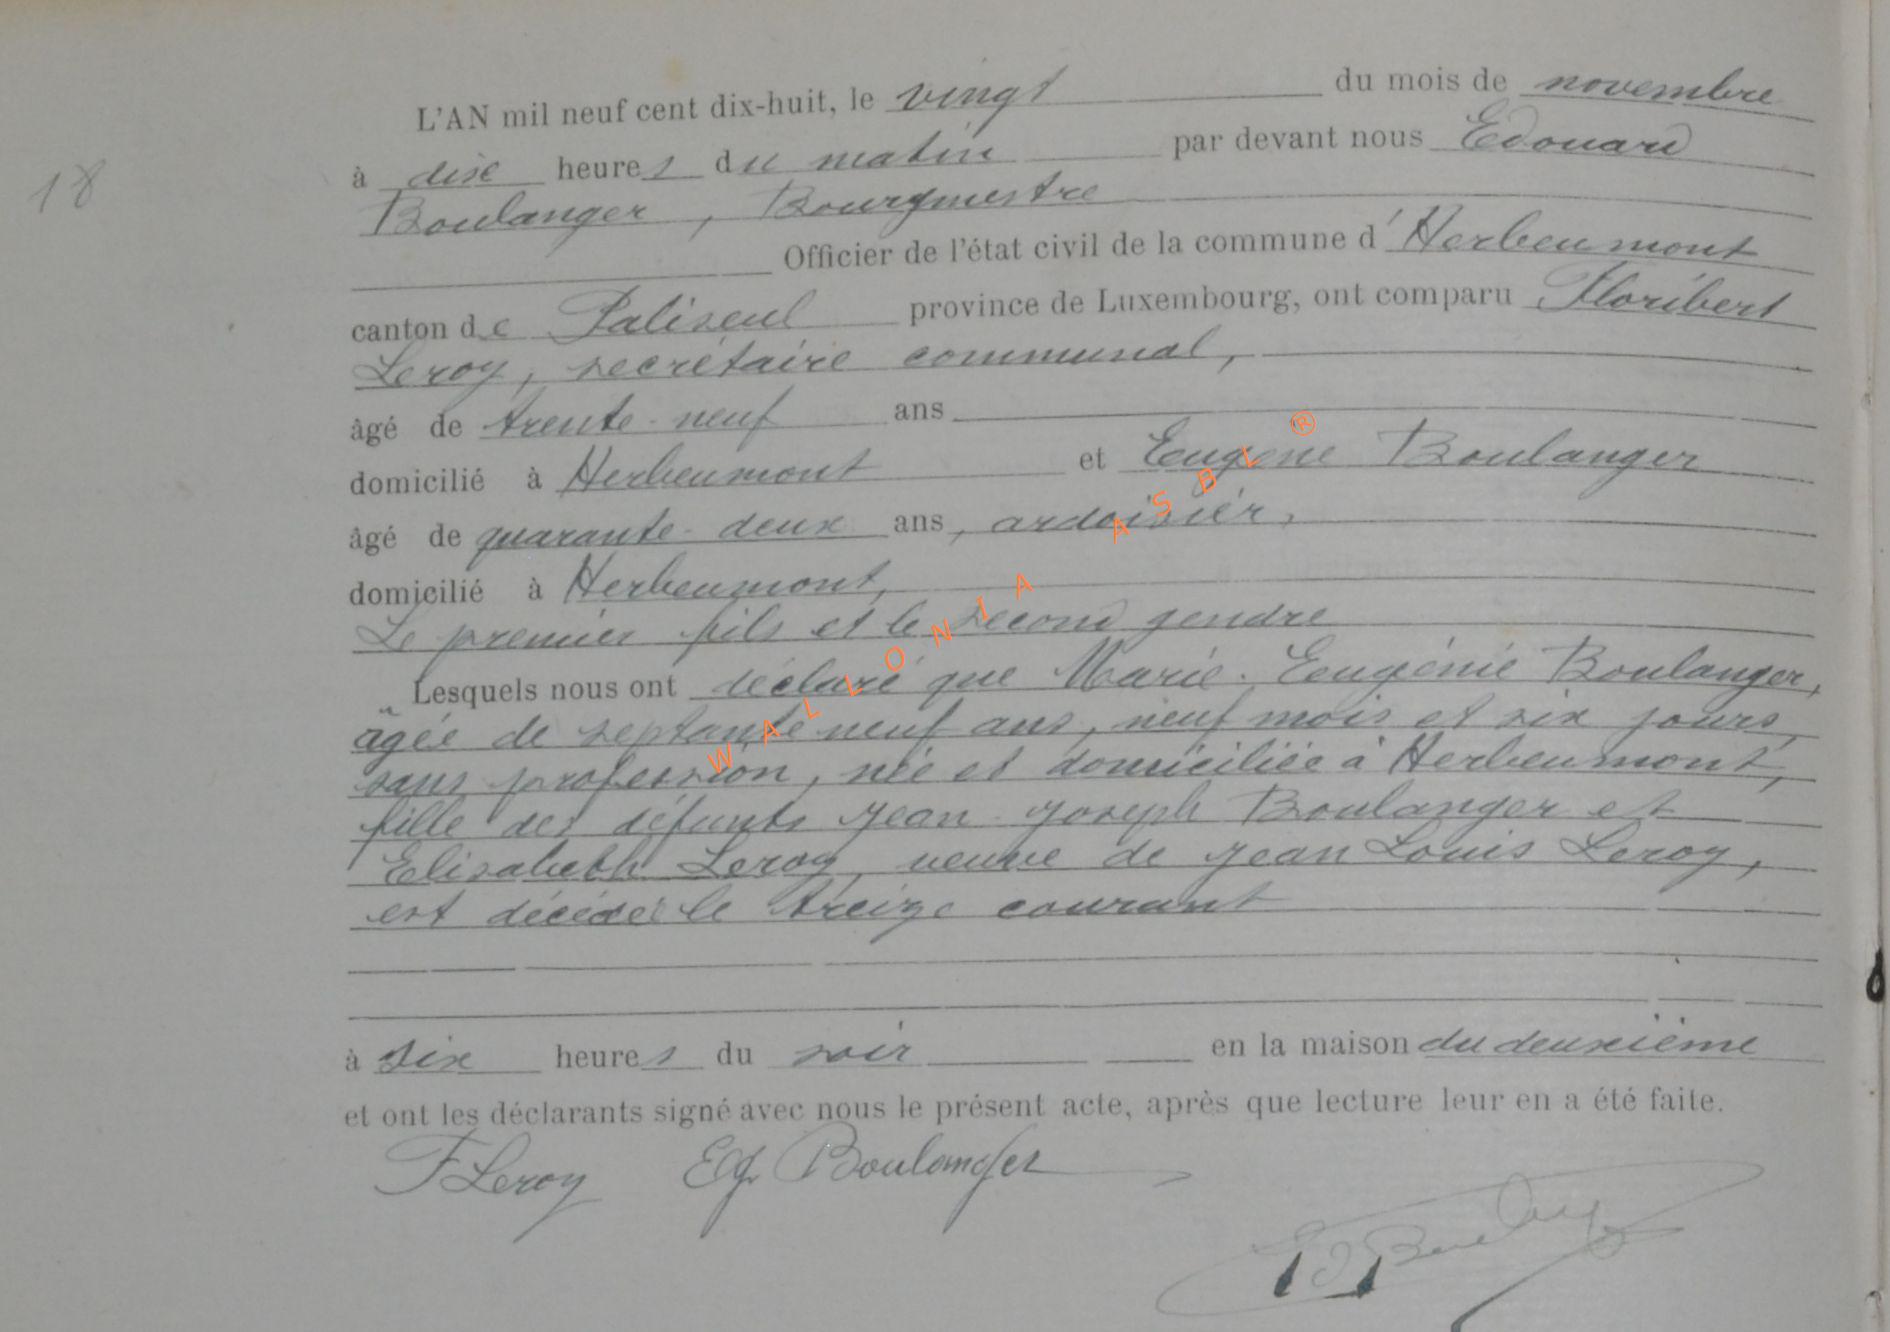 18
L'AN mil neuf cent dix-huit, le vingt du mois de novembre
à dix heures du matin par devant nous Edouard
Boulanger, Bourgmestre
Officier de l'état civil de la commune d'Herbeumont
canton de Paliseul province de Luxembourg, ont comparu Floribert
Leroy, secrétaire communal,
âgé de trente-neuf ans
domicilié à Herbeumont et Eugène Boulanger
âgé de quarante-deux ans, ardoisier,
domicilié à Herbeumont,
Le premier fils et le second gendre
Lesquels nous ont déclaré que Marie-Eugénie Boulanger,
âgée de septante neuf ans, neuf mois et six jours,
sans profession, née et domiciliée à Herbeumont,
fille des défunts Jean-Joseph Boulanger et
Elisabeth Leroy, veuve de Jean Louis Leroy,
est décédée le treize courant
à six heures du soir en la maison du deuxième
et ont les déclarants signé avec nous le présent acte, après que lecture leur en a été faite.
F Leroy Eg. Boulanger
WALLONIA ASBL ®